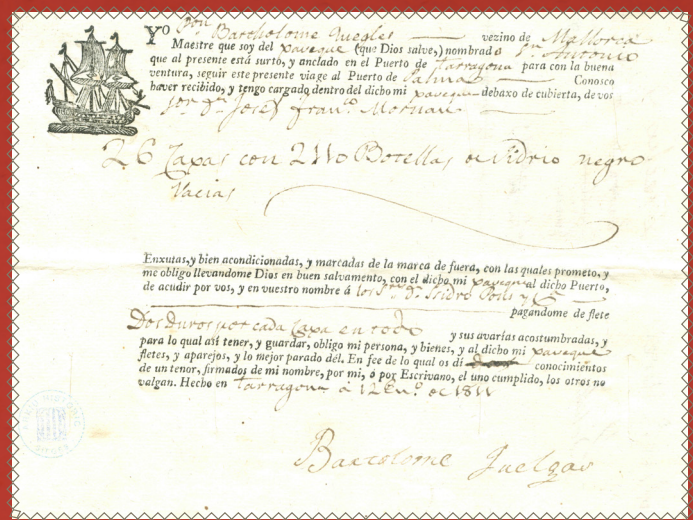 Yo Don Bartholome Juelgas vezino de Mallorca
Maestre que soy del xaveque (que Dios salve,) nombrado Sn Antonio
que al presente está surto, y anclado en el Puerto de Tarragona para con la buena
ventura, seguir este presente viage al Puerto de Palma Conosco
haver recibido, y tengo cargado dentro del dicho mi xaveque debaxo de cubierta, de vos
Sor Dn Josef Franco
26 Caxas con 2110 Botellas de Vidrio negro
Vacias
Enxutas, y bien acondicionadas, y marcadas de la marca de fuera, con las quales prometo, y
me obligo llevandome Dios en buen salvamento, con el dicho mi xaveque al dicho Puerto,
de acudir por vos, y en vuestro nombre á los Sres Dn Isidro
pagandome de flete
Dos duros por cada Caxa en todo y sus avarías acostumbradas, y
para lo qual así tener, y guardar, obligo mi persona, y bienes, y al dicho mi xaveque
fletes, y aparejos, y lo mejor parado dél. En fee de lo qual os di conocimientos
de un tenor, firmados de mi nombre, por mi, ó por Escrivano, el uno cumplido, los otros no
valgan. Hecho en Tarragona á 12 Eno de 1811
Bartolome Juelgas